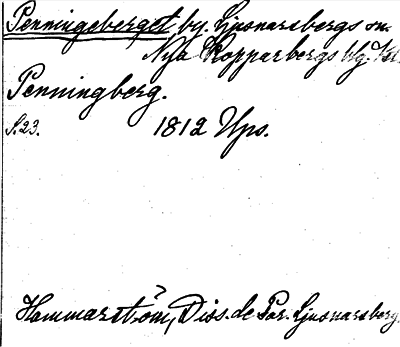 Penningeberget by. Ljusnarsbergs sn.
Nya Kopparbergs blg.
Penningberg.
S. 23. 1812 Ups.
Hammarström, Diss. de Par. Ljusnarsberg.